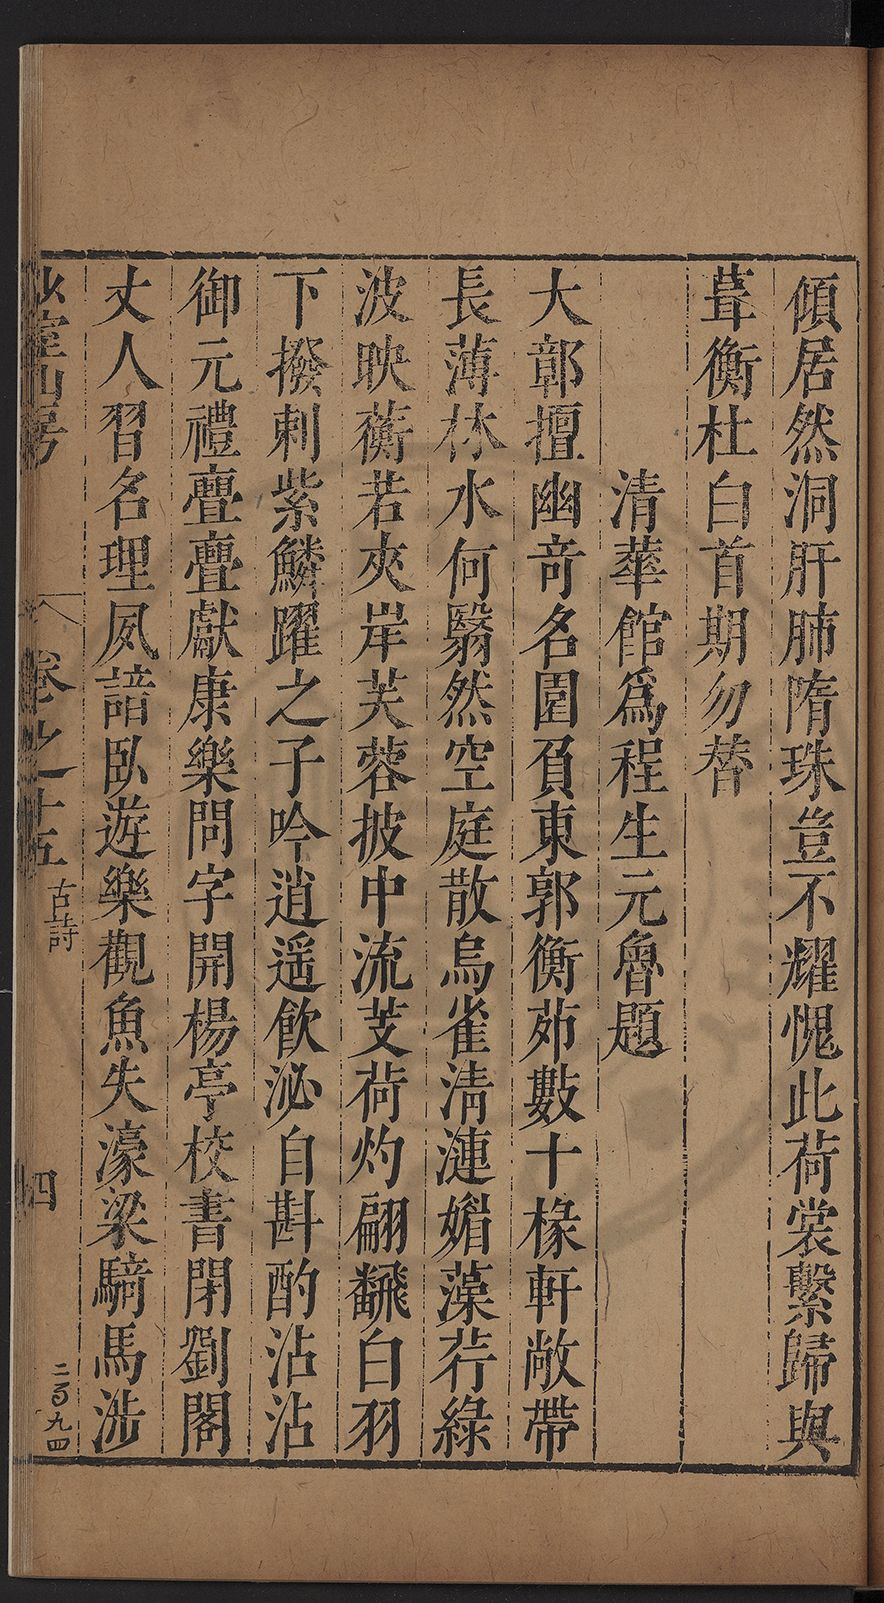 傾居然洞肝肺隋珠豈不耀愧此荷裳繫歸與
葺衡杜白首期勿替
清華館爲程生元魯題
大鄣擅幽奇名園負東郭衡茆數十椽軒敞帶
長薄林水何翳然空庭散烏雀淸漣媚藻荇綠
波映蘅若夾岸芙蓉披中流芰荷灼翩飜白羽
下撥剌紫鱗躍之子吟逍遥飲泌自斟酌沾沾
御元禮亹亹獻康樂問字開楊亭校書閉劉閣
丈人習名理夙諳臥遊樂觀魚失濠梁騎馬涉
室山房 卷之十五 古詩 四 二百九四